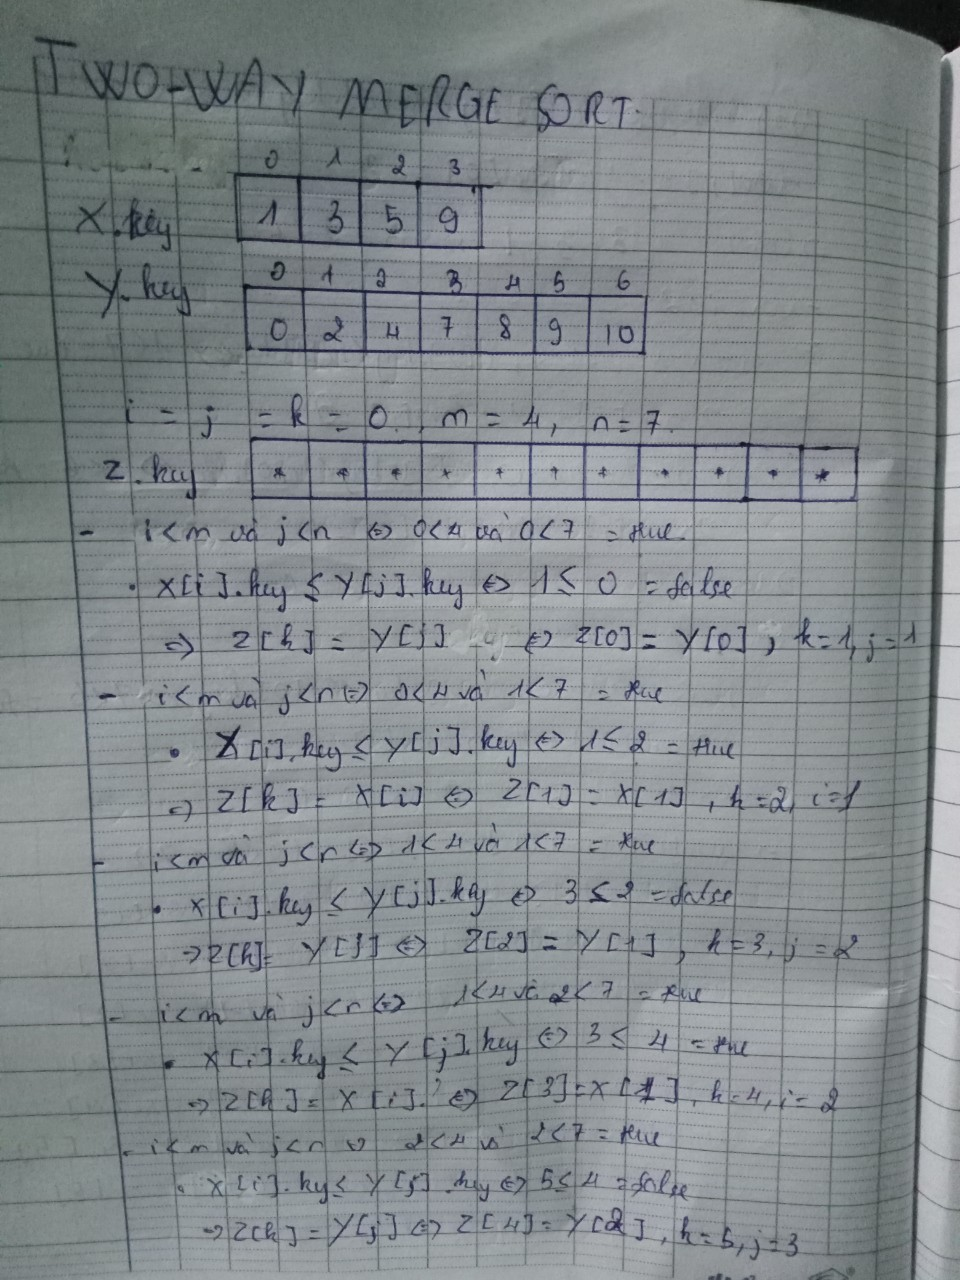 TWO-WAY MERGE SORT.
0 1 2 3
X.key 1 3 5 9
0 1 2 3 4 5 6
Y.key 0 2 4 7 8 9 10
i = j = k = 0, m = 4, n = 7.
Z.key * * * * * * * * * * *
- i<m và j<n ⇔ 0<4 và 0<7 = true
• X[i].key ≤ Y[j].key ⇔ 1 ≤ 0 = false
⇒ Z[k] = Y[j] ⇔ Z[0] = Y[0], k=1, j=1
- i<m và j<n ⇔ 0<4 và 1<7 = true
• X[i].key ≤ Y[j].key ⇔ 1 ≤ 2 = true
⇒ Z[k] = X[i] ⇔ Z[1] = X[1], k=2, i=1
- i<m và j<n ⇔ 1<4 và 1<7 = true
• X[i].key ≤ Y[j].key ⇔ 3 ≤ 2 = false
⇒ Z[k] = Y[j] ⇔ Z[2] = Y[1], k=3, j=2
- i<m và j<n ⇔ 1<4 và 2<7 = true
• X[i].key ≤ Y[j].key ⇔ 3 ≤ 4 = true
⇒ Z[k] = X[i] ⇔ Z[3] = X[1], k=4, i=2
- i<m và j<n ⇔ 2<4 và 2<7 = true
• X[i].key ≤ Y[j].key ⇔ 5 ≤ 4 = false
⇒ Z[k] = Y[j] ⇔ Z[4] = Y[2], k=5, j=3